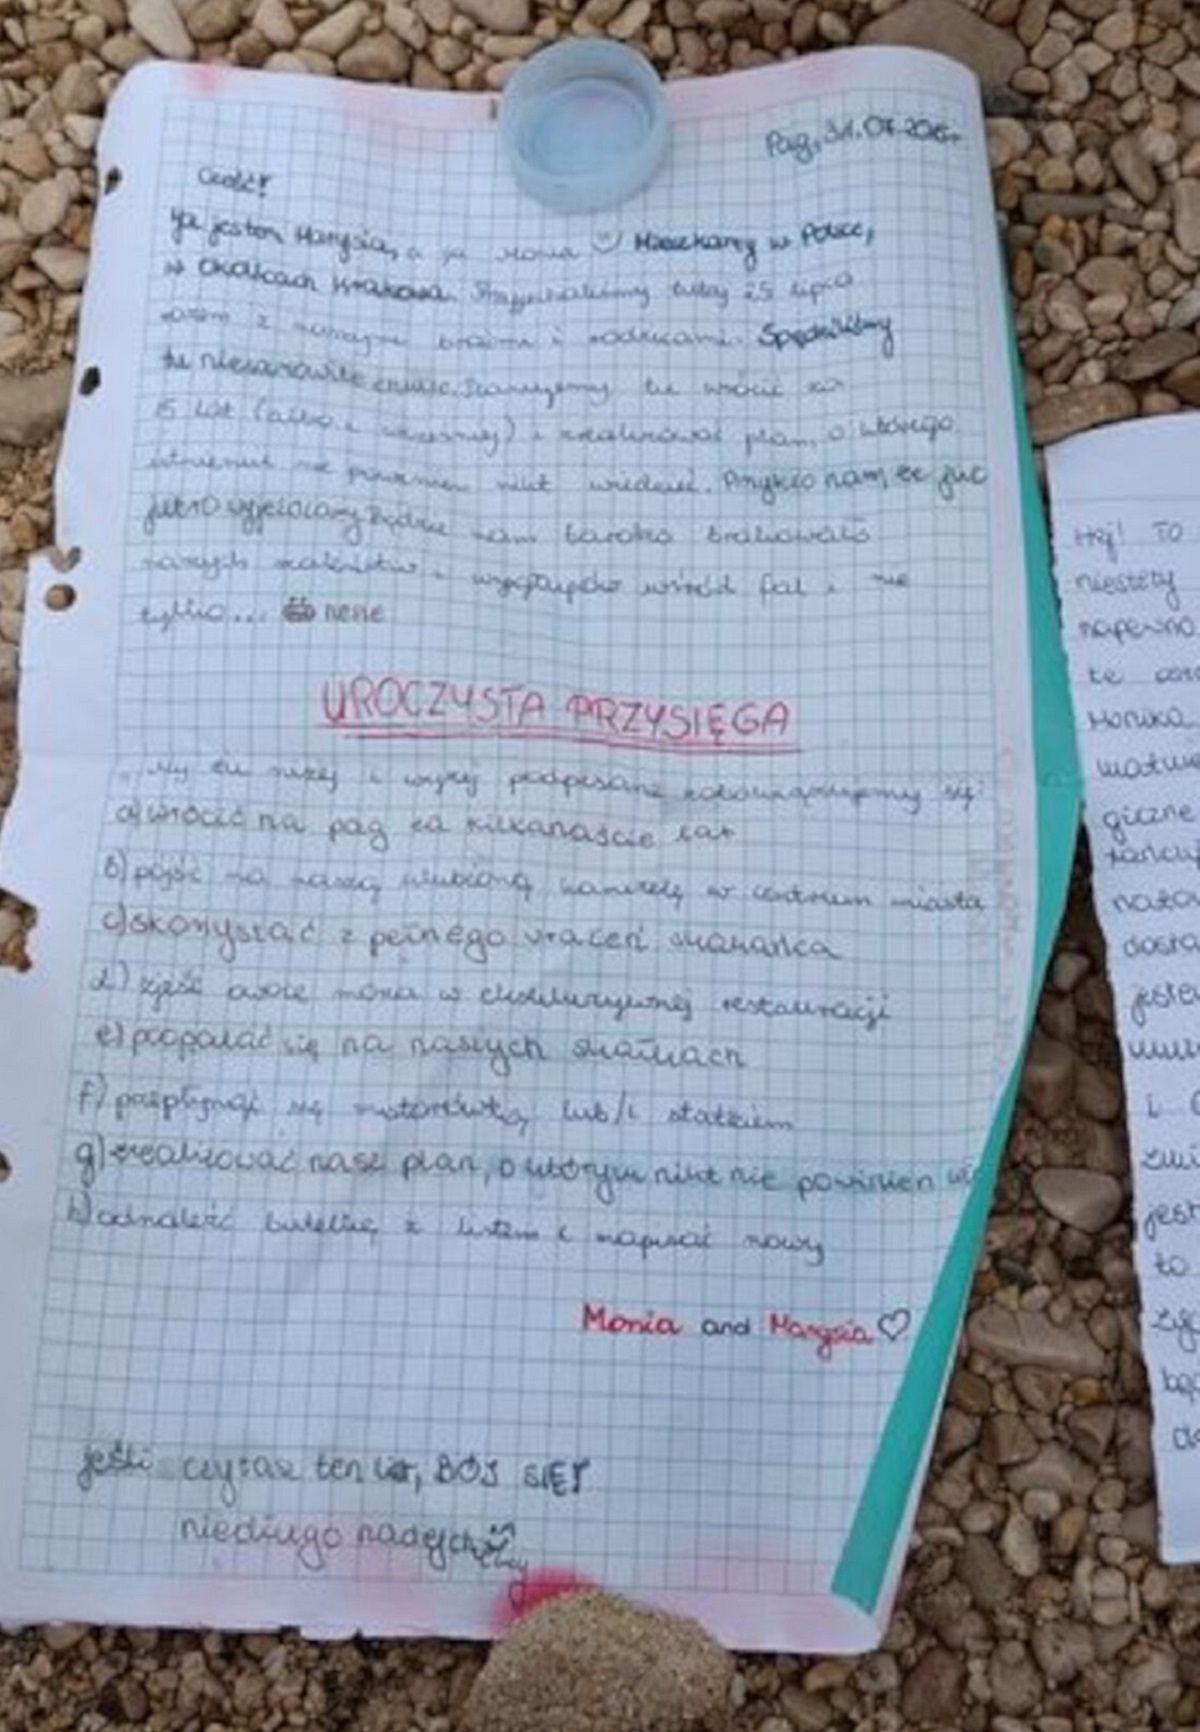 Pag, 31.07.2015r
Cześć!
Ja jestem Marysia, a ja Monia Mieszkamy w Polsce,
w okolicach Krakowa. Przyjechaliśmy tutaj 25 lipca
razem z naszymi braćmi i rodzicami. Spędziliśmy
tu niesamowite chwile. Planujemy tu wrócić za
15 lat (albo i wcześniej) i zrealizować plan, o którego
istnieniu nie powinien nikt wiedzieć. Przykro nam, że już
jutro wyjeżdżamy będzie nam bardzo brakowało
naszych i wygłupów wśród fal i nie
tylko... hehe
UROCZYSTA PRZYSIĘGA
My tu niżej i wyżej podpisane zobowiązujemy się:
a) wrócić na pag za kilkanaście lat
b) pójść na naszą ulubioną w centrum miasta
c) skorzystać z pełnego wrażeń
d) zjeść owoce morza w ekskluzywnej restauracji
e) poopalać się na naszych skałkach
f) popłynąć się motorówką lub/i statkiem
g) zrealizować nasz plan, o którym nikt nie powinien wi
h) odnaleźć butelkę z listem i napisać nowy
Monia and Marysia ♡
jeśli czytasz ten list, BÓJ SIĘ!
niedługo nadejdziemy
Hej! To
niestety
napewno
te
Monika
giczne
jeste
i
jest
to